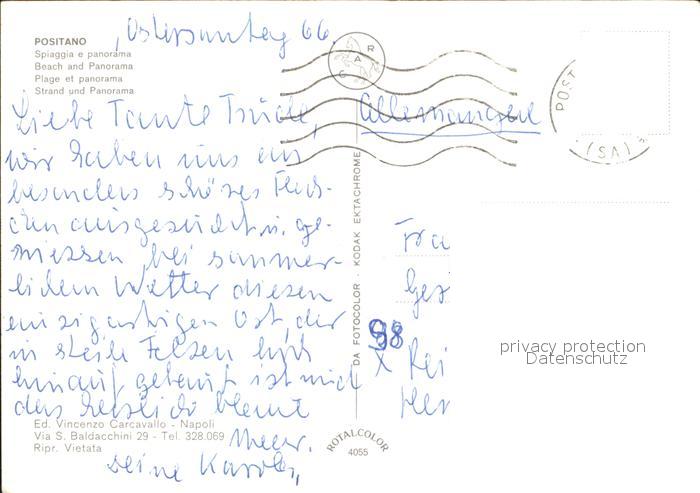 POSITANO
Spiaggia e panorama
Beach and Panorama
Plage et panorama
Strand und Panorama
Ostersonntag 66.
Liebe Tante Trude,
wir haben uns ein
besonders schönes Fleck-
chen ausgesucht u. ge-
niessen bei sommer-
lichem Wetter diesen
einzigartigen Ort, der
in steile Felsen hoch
hinauf gebaut ist und
das herrlich blaue
Meer.
Deine
Ed. Vincenzo Carcavallo - Napoli
Via S. Baldacchini 29 - Tel. 328.069
Ripr. Vietata
DA FOTOCOLOR - KODAK EKTACHROME
ROTALCOLOR
4055
CAR
POST
(SA)
Fra
98
privacy protection
Datenschutz